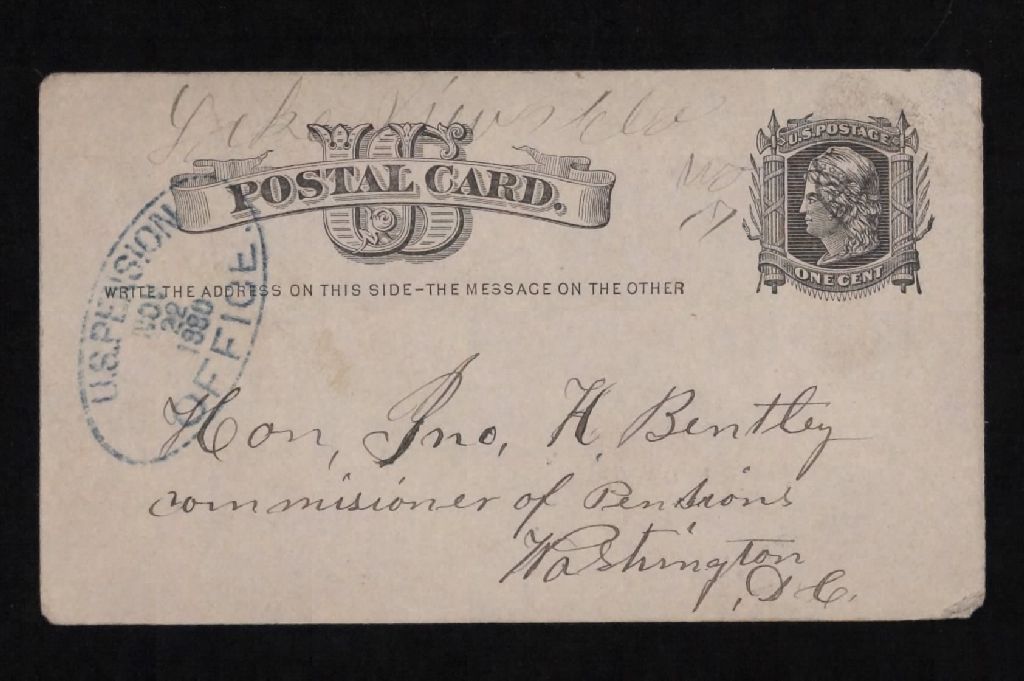 US
POSTAL CARD.
U.S. POSTAGE
ONE CENT
WRITE THE ADDRESS ON THIS SIDE-THE MESSAGE ON THE OTHER
U.S. PENSION
NOV
22
1880
OFFICE.
Hon, Jno, H Bentley
commisioner of Pensions
Washington
, D C.